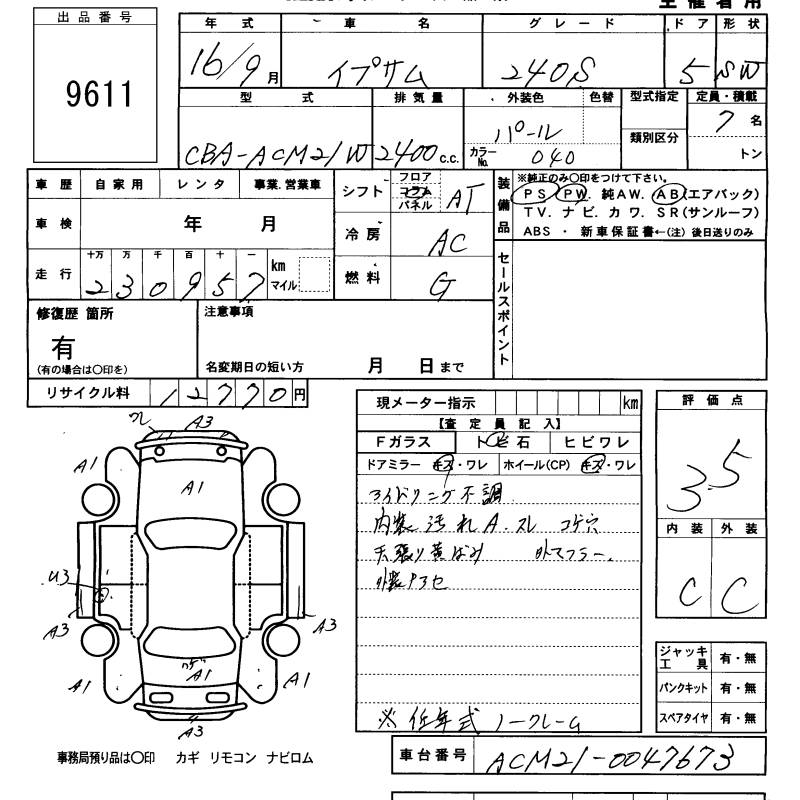 主催者用
出品番号
9611
年式 車名 グレード ドア 形状
16/9月 イプサム 240S 5 SW
型式 排気量 外装色 色替 型式指定 定員・積載
CBA-ACM21W 2400c.c. パール 類別区分 7名
カラーNo. 040 トン
車歴 自家用 レンタ 事業.営業車
車検 年 月
走行 十万 万 千 百 十 一
2 3 0 9 5 7 km マイル
シフト フロア コラム パネル AT
冷房 AC
燃料 G
装備品
※純正のみ〇印をつけて下さい。
PS PW. 純AW. AB(エアバック)
TV. ナビ. カワ. SR(サンルーフ)
ABS ・ 新車保証書←(注) 後日送りのみ
セールスポイント
修復歴 箇所
有
(有の場合は〇印を)
注意事項
名変期日の短い方 月 日まで
リサイクル料 12770円
現メーター指示 km
【査定員記入】
Fガラス トビ石 ヒビワレ
ドアミラー キズ・ワレ ホイール(CP) キズ・ワレ
アイドリング不調
内装汚れA.スレ コゲ穴
天張り黄ばみ 外マフラー.
外装
※低年式 ノークレーム
評価点
3.5
内装 外装
C C
ジャッキ工具 有・無
パンクキット 有・無
スペアタイヤ 有・無
ワレ A3
A1 A1
A1
U3
A3 A3
A1 A1 A1
A3
事務局預り品は〇印 カギ リモコン ナビロム
車台番号 ACM21-0047673